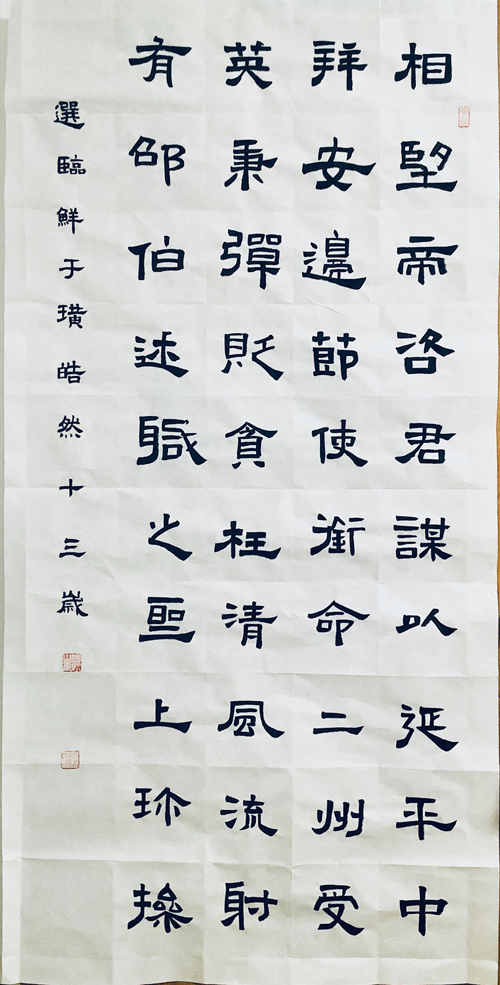 相望帝咨君謀以延平中
拜安邊節使銜命二州受
英秉彈貶貪枉清風流射
有邵伯述職之聖上珎操
選臨鮮于璜皓然十三歲